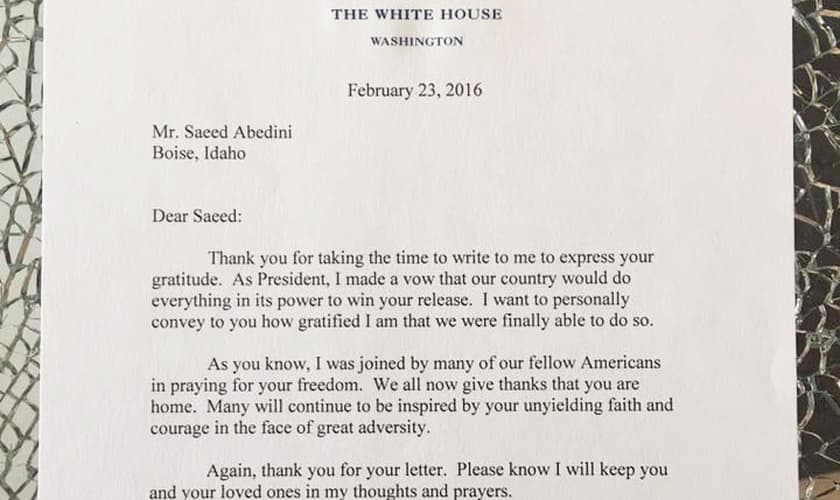 THE WHITE HOUSE
WASHINGTON
February 23, 2016
Mr. Saeed Abedini
Boise, Idaho
Dear Saeed:
Thank you for taking the time to write to me to express your
gratitude. As President, I made a vow that our country would do
everything in its power to win your release. I want to personally
convey to you how gratified I am that we were finally able to do so.
As you know, I was joined by many of our fellow Americans
in praying for your freedom. We all now give thanks that you are
home. Many will continue to be inspired by your unyielding faith and
courage in the face of great adversity.
Again, thank you for your letter. Please know I will keep you
and your loved ones in my thoughts and prayers.